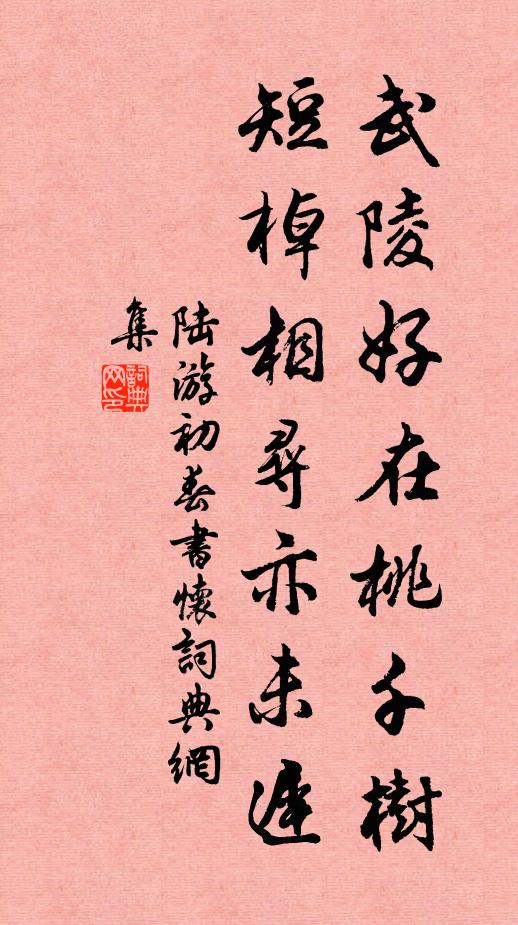 武陵好在桃千樹
短棹相尋亦未遲
陸游初春書懷詞典網
集
詞典網印